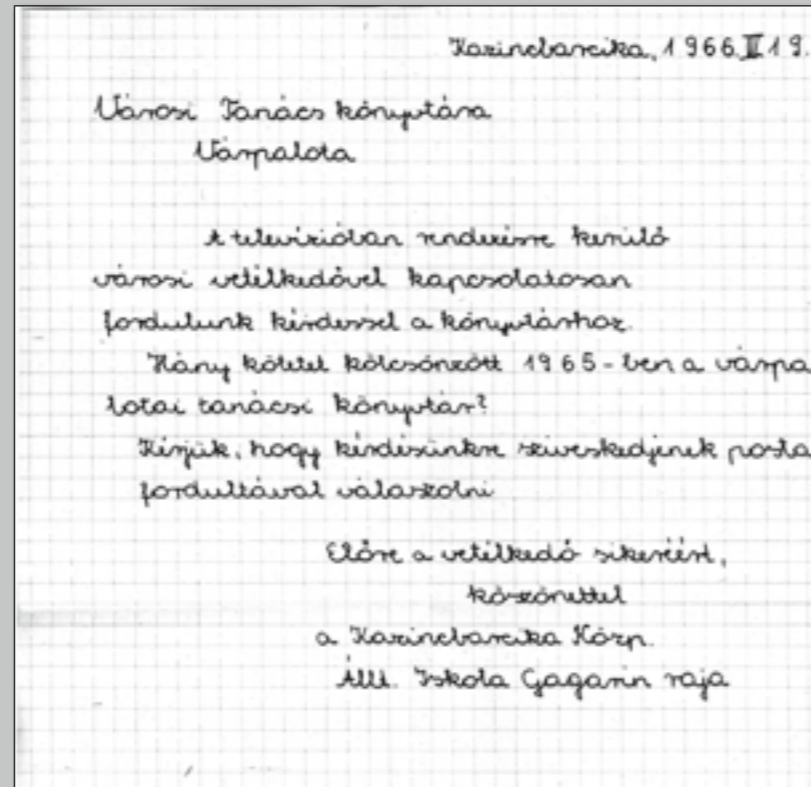 Kazincbarcika, 1966. III 19.
Városi Tanács könyvtára
Várpalota
A televízióban rendezésre kerülő
városi vetélkedővel kapcsolatosan
fordulunk kérdéssel a könyvtárhoz.
Hány kötetet kölcsönzött 1965-ben a várpa
lotai tanácsi könyvtár?
Kérjük, hogy kérdésünkre sziveskedjenek posta
fordultával válaszolni
Előre a vetélkedő sikeréért,
köszönettel
a Kazincbarcika Közp.
Ált. Iskola Gagarin raja